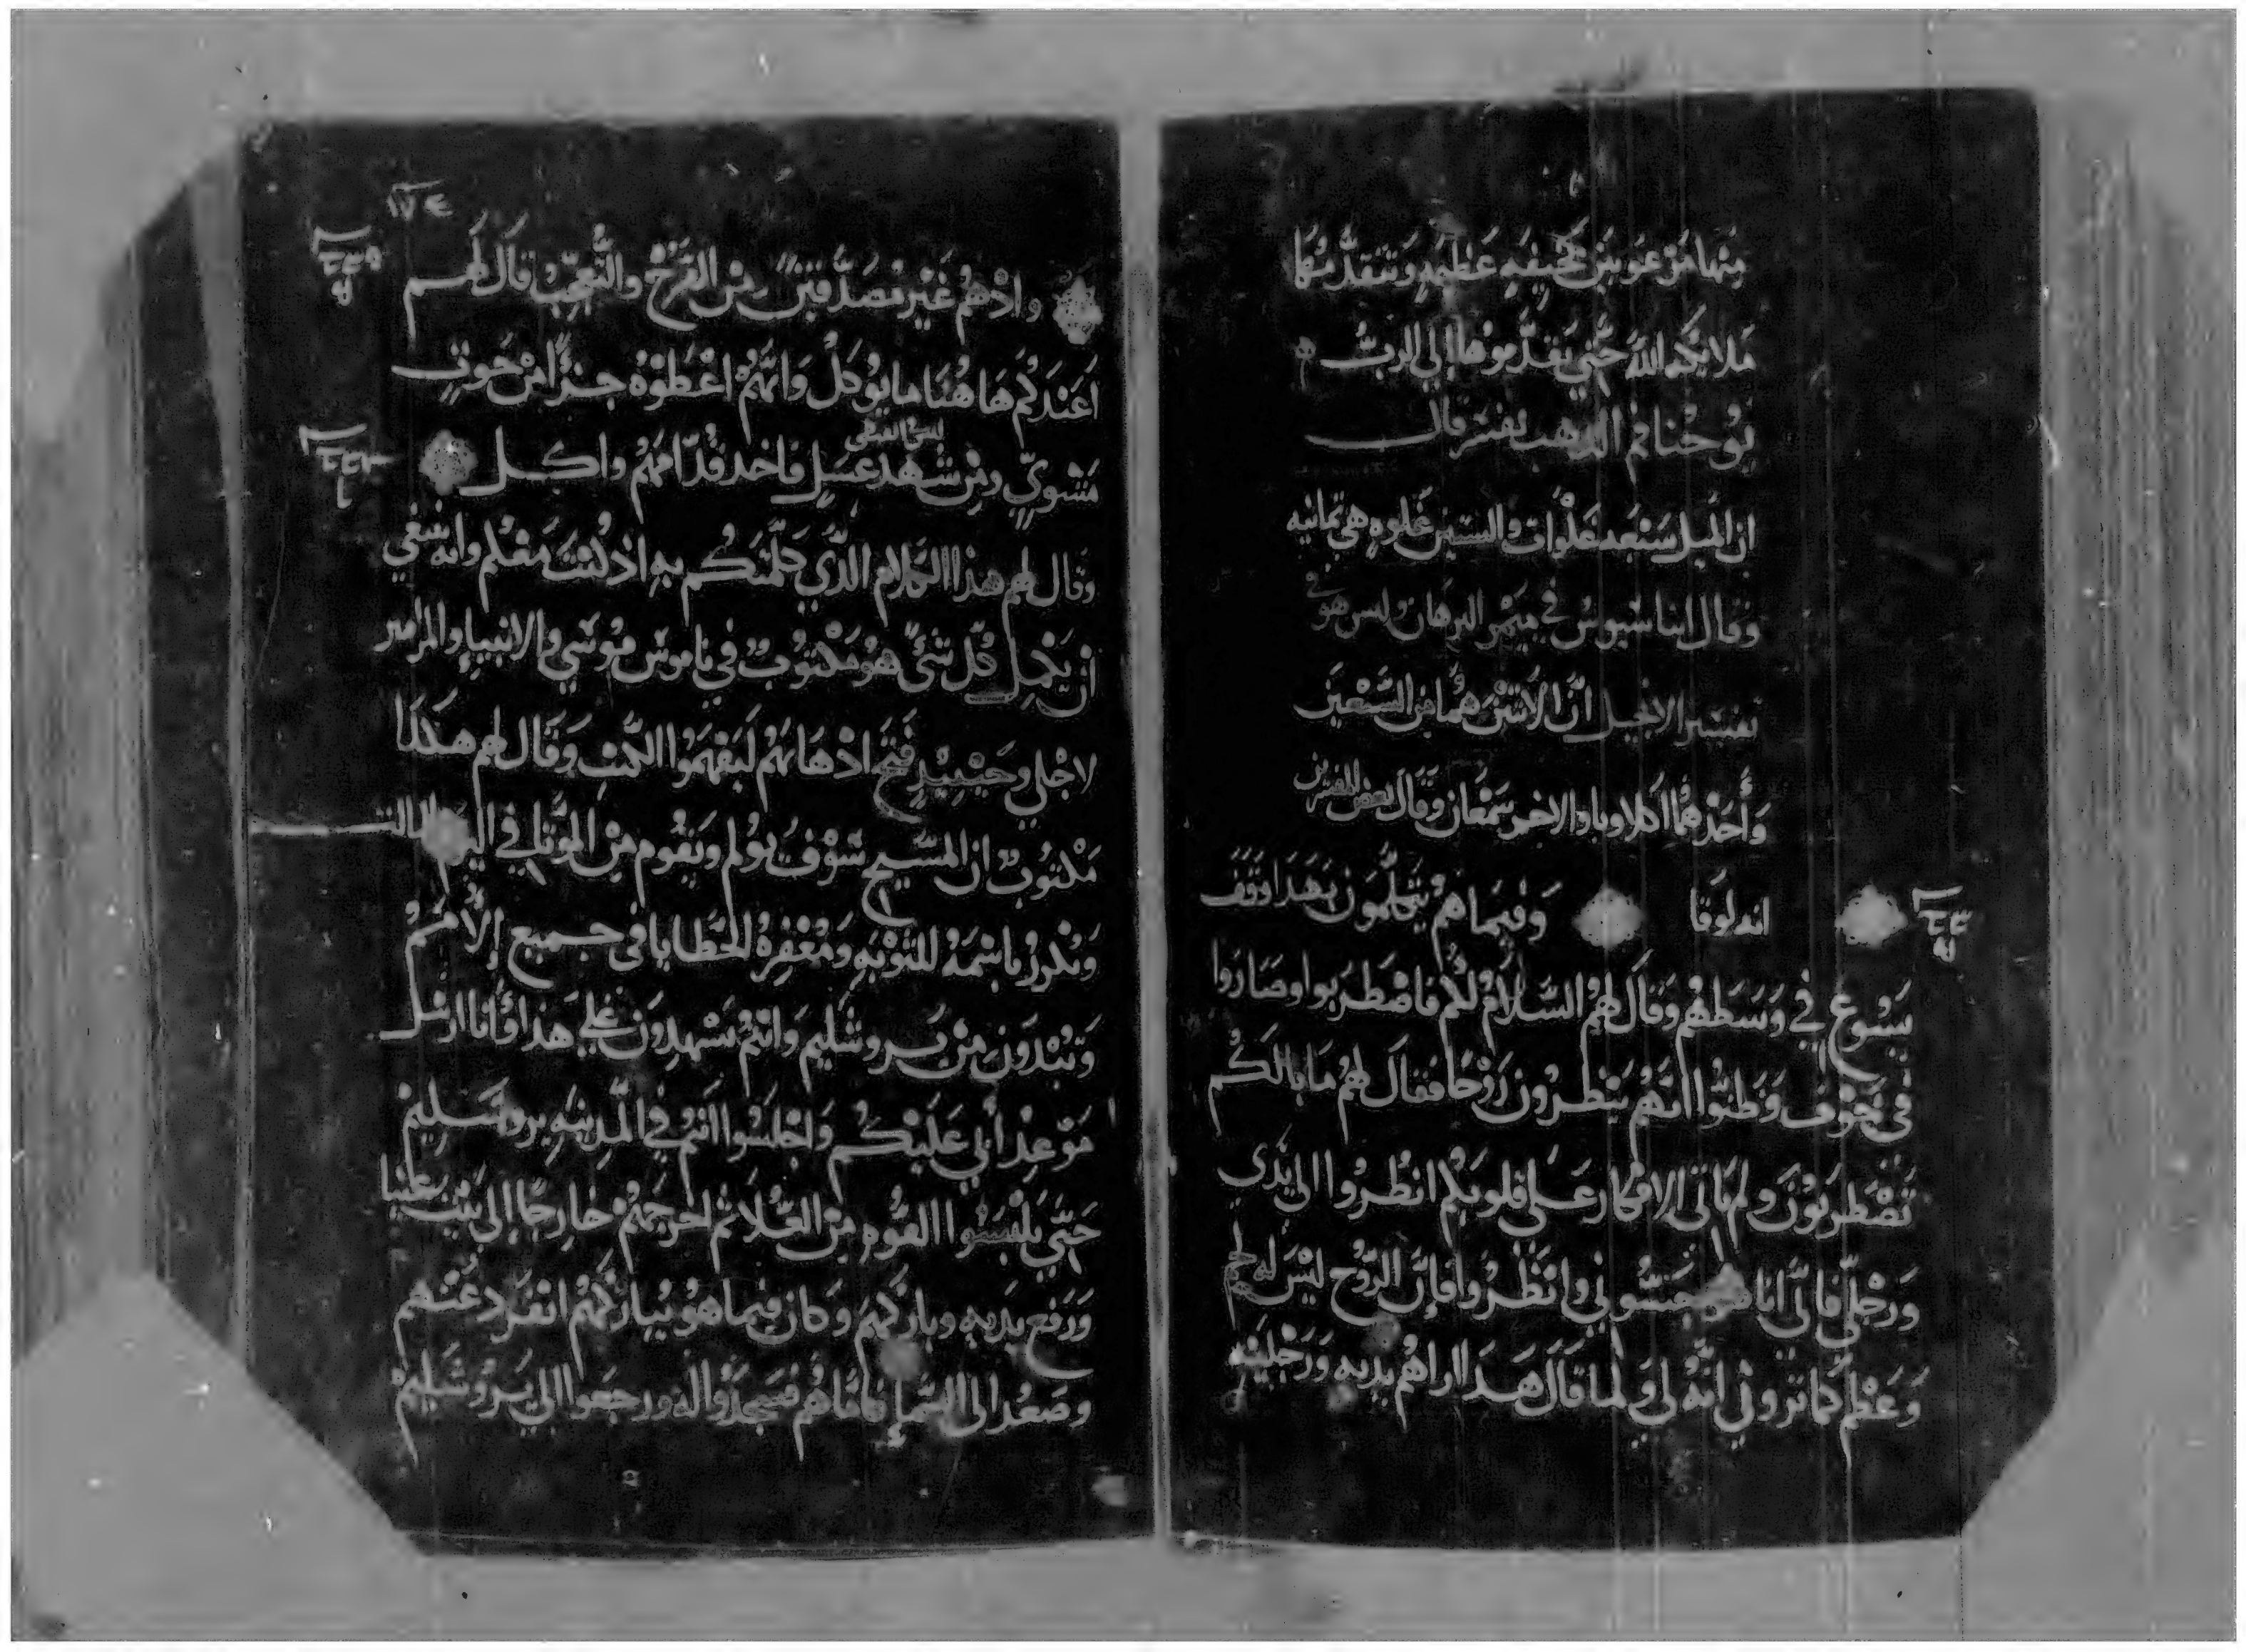 منها من عويص مخيفه عظيمه وتتقدمها
ملائكه الله حتي يقدموها الي الرب
يوحنا فم الذهب يفسر قال
ان الميل سبعه غلوات والستين غلوه هي ثمانيه
وقال في ميمر البرهان وليس هو في
تفسير الانجيل ان الاثنين هما من السبعين
وأحدهما اكلاوبا والاخر سمعان وقال بعض المفسرين
انه لوقا وفيما هم يتكلمون بهذا وقف
يسوع في وسطهم وقال لهم السلام لكم فاضطربوا وصاروا
في خوف وظنوا انهم ينظرون روحا فقال لهم ما بالكم
تضطربون ولم تاتي الافكار على قلوبكم انظروا الى يدي
ورجلي فاني انا هو جسوني وانظروا فإن الروح ليس له لحم
وعظم كما تروني انه لي ولما قال هذا اراهم يديه ورجليه
١٧٤
واذ هم غير مصدقين من الفرح والتعجب قال لهم
أعندكم هاهنا ما يؤكل وانهم اعطوه جزًا من حوت
مشوي ومن شهد عسل فاخد قدامهم واكل
وقال لهم هذا الكلام الذي كلمتكم به اذ كنت معكم وانه ينبغي
ان يكمل كل شئ هو مكتوب في ناموس موسي والانبياء والمزامير
لاجلي وحينيذٍ فتح اذهانهم ليفهموا الكتب وقال لهم هكذا
مكتوب ان المسيح سوف يولم ويقوم من الموتى في اليوم الثالث
ويكرز باسمه للتوبه ومغفره الخطايا في جميع الأمم
وتبدون من يروشليم وانتم تشهدون علي هذا وأنا ارسل
موعد أبي عليكم واجلسوا انتم في المدينه يروشليم
حتي تلبسوا القوه من العلا ثم اخرجهم خارجًا إلى بيت عنيا
ورفع يديه وباركهم وكان فيما هو يباركهم انفرد عنهم
وصعد الى السماء فاما هم فسجدوا له ورجعوا الي يروشليم